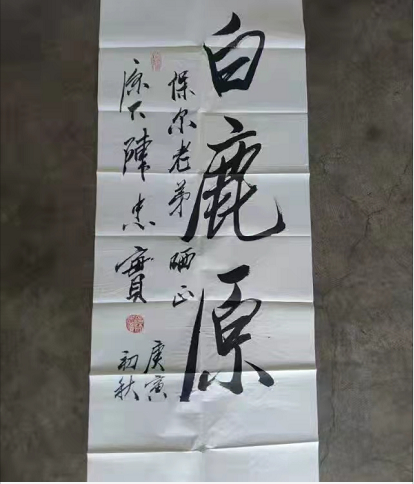 白鹿原
保尔老弟 哂正
原下陳忠實
庚寅
初秋